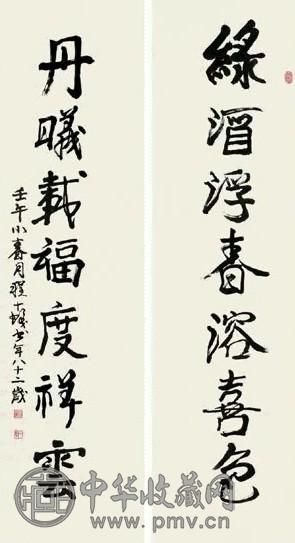 綠酒浮春溶喜色
丹曦載福度祥雲
壬午小春月程十髮書年八十二歲
中华收藏网
www.pmv.cn